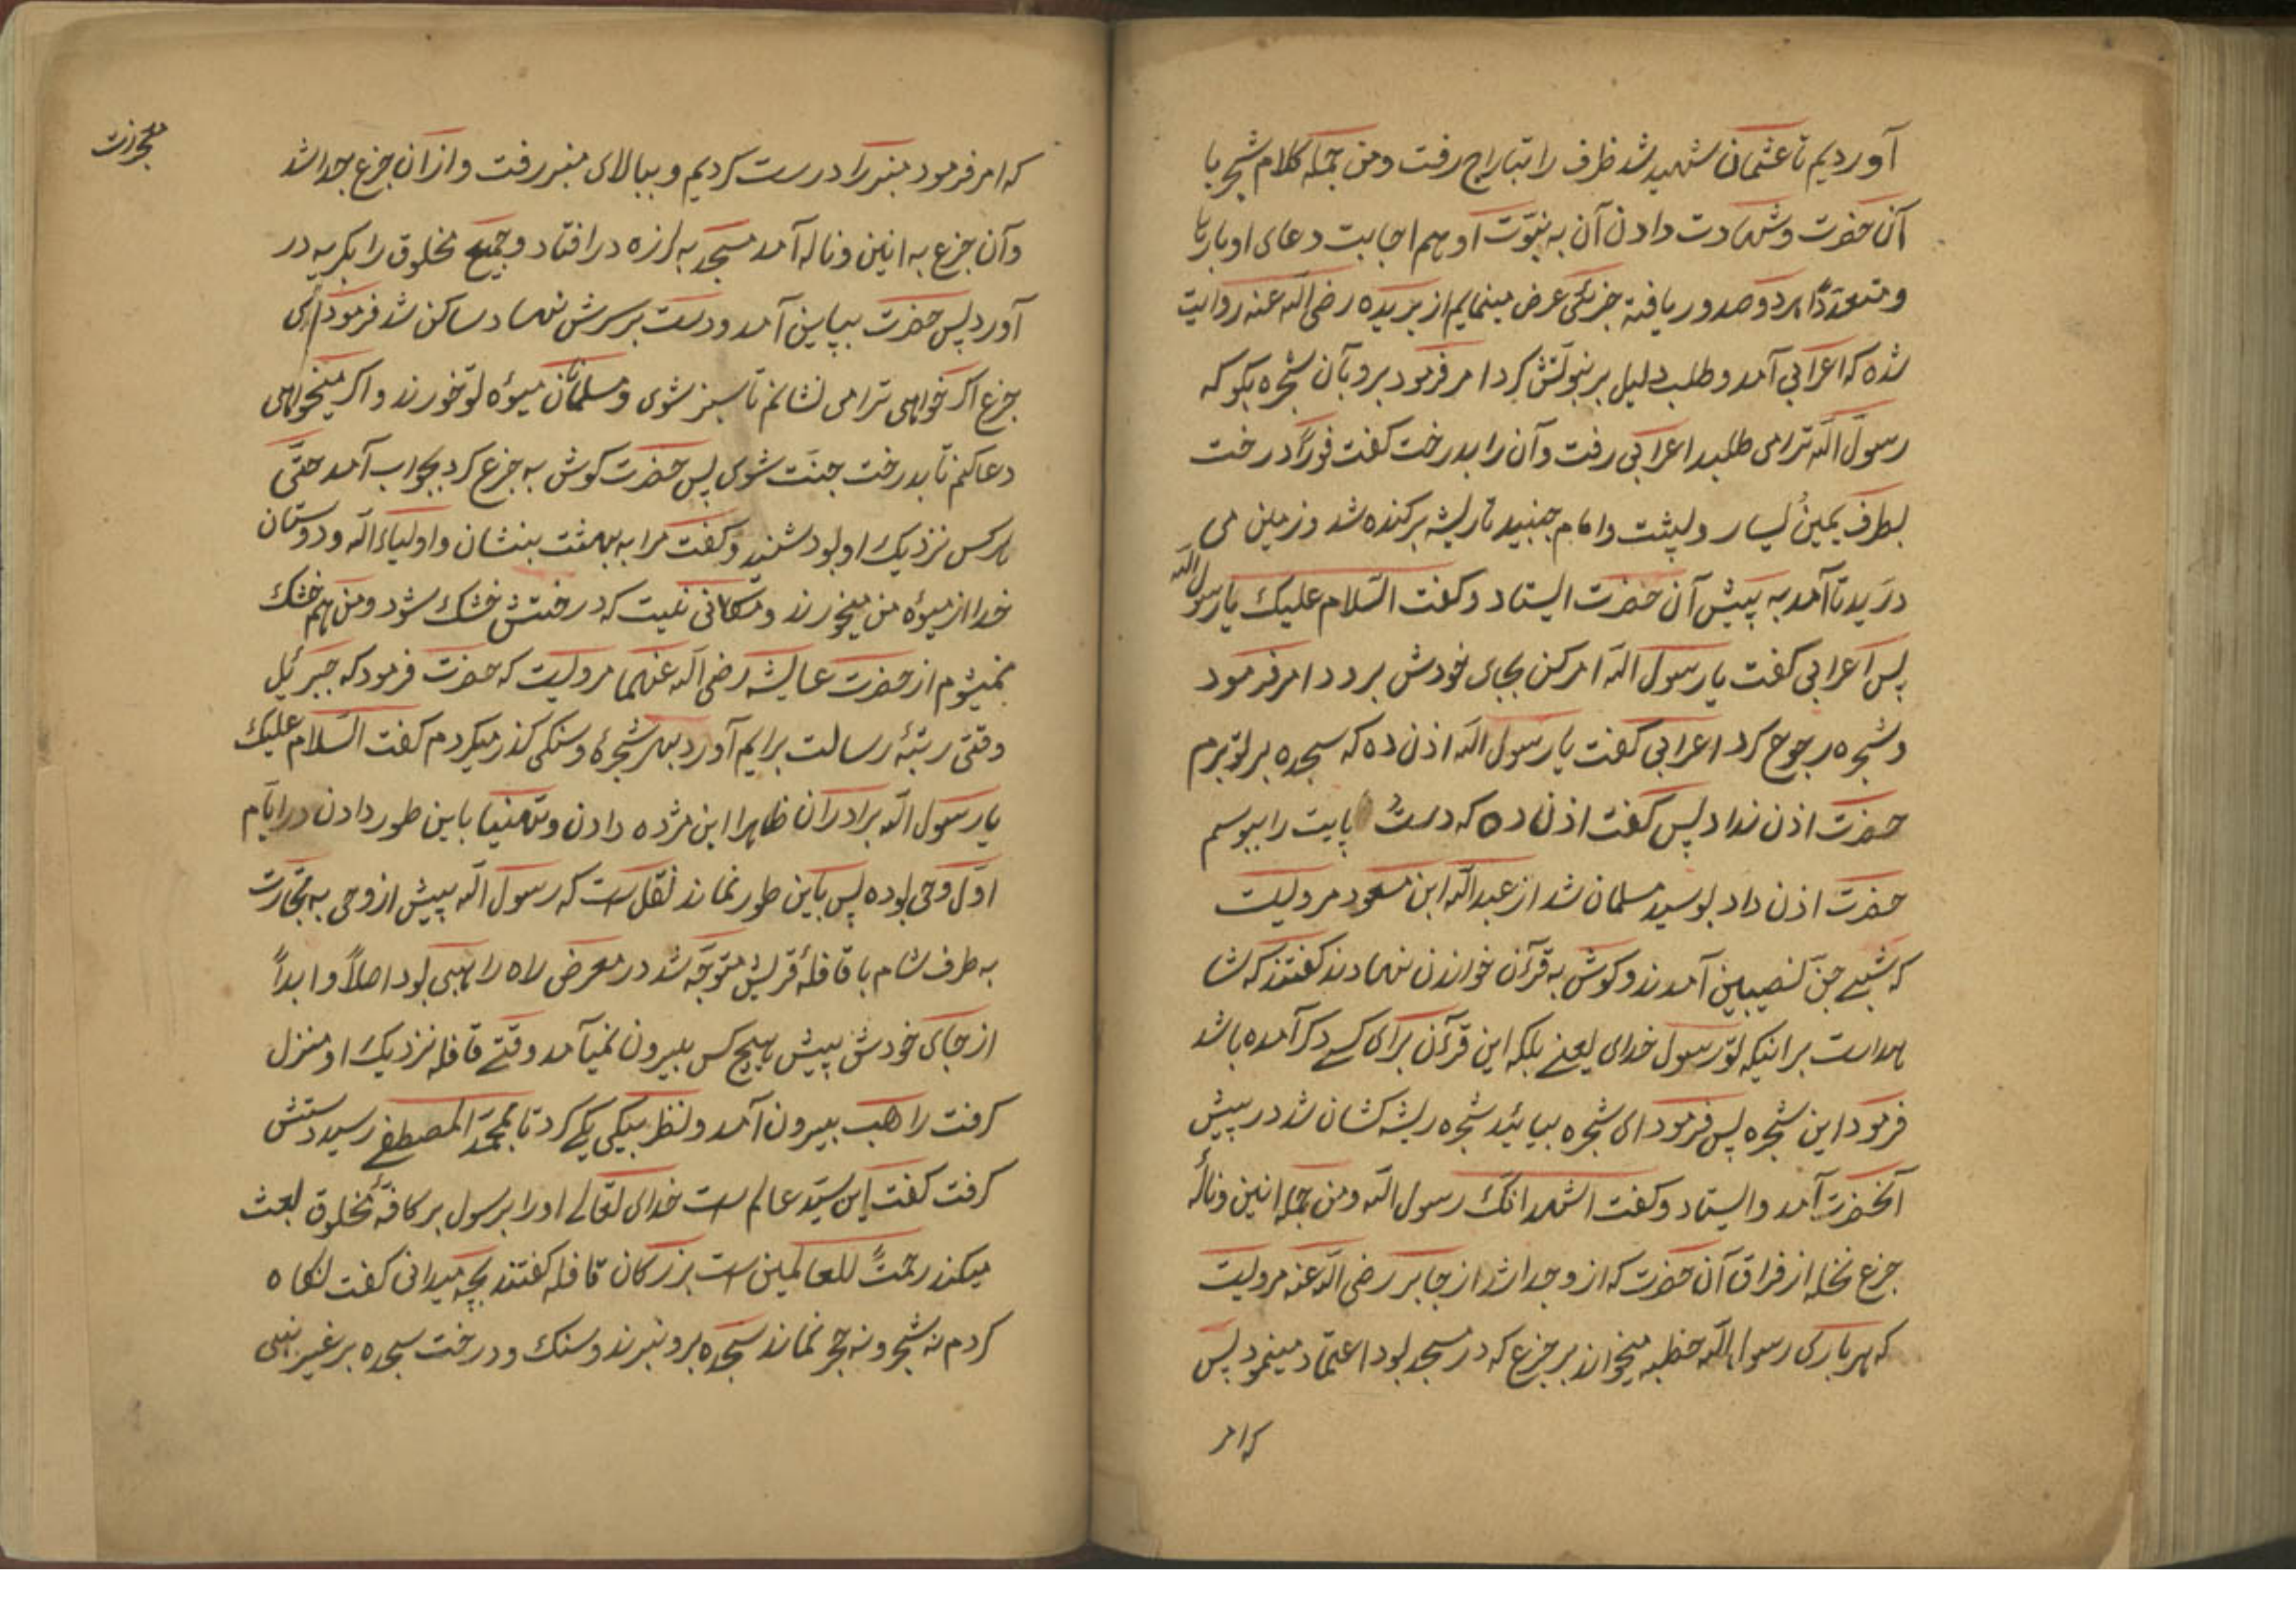 آوردیم تا عثمان شهید شد ظرف را بتاراج رفت ومن جمله کلام شجر با
آن حضرت وشهادت دادن آن به نبوّت او وهم اجابت دعای او بارها
ومتعدّداً برد وصدور یافته جزئکی عرض مینمایم از بریده رضی الله عنه روایت
شده که اعرابی آمد وطلب دلیل بر نبوتش کرد امر فرمود برو بآن شجره بگو که
رسول الله ترا می طلبد اعرابی رفت وآن را بدرخت گفت فوراً درخت
بطرف یمین یسار وپشت وامام جنبید تا ریشه برکنده شد وزمین می
درید تا آمد به پیش آن حضرت ایستاد وگفت السّلام علیك یا رسول الله
پس اعرابی گفت یا رسول الله امر کن بجای خودش برود امر فرمود
وشجره رجوع کرد اعرابی گفت یا رسول الله اذن ده که سجده بر تو برم
حضرت اذن نداد پس گفت اذن ده که دست پایت را ببوسم
حضرت اذن داد بوسید مسلمان شد از عبد الله ابن مسعود مرویست
که شبے جنّ نصیبین آمدند وگوش به قرآن خواندن نهادند گفتند که شا
هداست برانیکه تو رسول خدای یعنے بلکه این قرآن برای کسے دگر آمده باشد
فرمود این شجره پس فرمود ای شجره بیائید شجره ریشه کشان شد در پیش
آنحضرت آمد وایستاد وگفت اشهد انّك رسول الله ومن جمله انین ونالهٔ
جزع نخله از فراق آن حضرت که ازو جدا شد از جابر رضی الله عنه مرویست
که هر باری رسول الله خطبه میخواند بر جزع که در مسجد بود اعتماد مینمود پس
که امر
معجزات
که امر فرمود منبر را درست کردیم وببالای منبر رفت وازان جزع جدا شد
وآن جزع به انین وناله آمد مسجد به لرزه درافتاد وجمیع مخلوق را بگریه در
آورد پس حضرت بپایین آمد ودست بر سرش نهاد ساکن شد فرمود ای
جزع اگر خواهی ترا می نشانم تا سبز شوی ومسلمانان میوهٔ تو خورند واگر میخواهی
دعا کنم تا بدرخت جنّت شوی پس حضرت گوش به جزع کرد بجواب آمد حتّی
هر کس نزدیك او بود شنید وگفت مرا به بهشت بنشان واولیاء الله ودوستان
خدا از میوهٔ من میخورند ومکانی نیست که درختش خشك شود ومن هم خشك
نمیشوم از حضرت عایشه رضی الله عنهما مرویست که حضرت فرمود که جبرئیل
وقتی رتبهٔ رسالت برایم آورد بهر شجرهٔ وسنگی گذر میکردم گفت السّلام علیك
یا رسول الله برادران ظاهرا این مژده دادن وتهنیّا باین طور دادن در ایّام
اوّل وحی بوده پس باین طور نماند نقل است که رسول الله پیش از وحی به تجارت
به طرف شام با قافلهٔ قریش متوجّه شد در معرض راه راهبی بود اصلاً وابداً
از جای خودش پیش هیچ کس بیرون نمیآمد وقتے قافله نزدیك او منزل
گرفت راهب بیرون آمد ونظر بیکی یکے کرد تا بمحمّد المصطفے رسید دستش
گرفت گفت این سیّد عالم است خدای تعالے اورا برسول بر کافّهٔ مخلوق بعث
میکند رحمتً للعالمین است بزرگان قافله گفتند بچه میدانی گفت نگاه
کردم نه شجر ونه حجر نماند سجده برو نبرند وسنگ ودرخت سجده بر غیر نبی